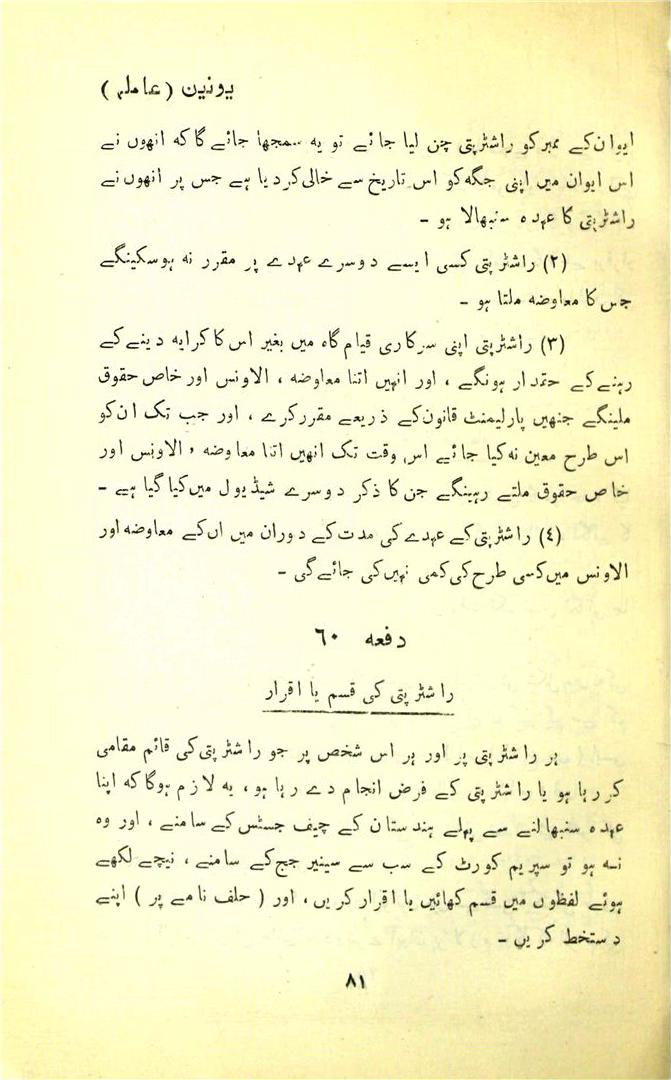 یونین (عاملہ)
ایوان کے ممبر کو راشٹرپتی چن لیا جائے تو یہ سمجھا جائے گا کہ انھوں نے
اس ایوان میں اپنی جگہ کو اس تاریخ سے خالی کر دیا ہے جس پر انھوں نے
راشٹرپتی کا عہدہ سنبھالا ہو ۔
(۲) راشٹرپتی کسی ایسے دوسرے عہدے پر مقرر نہ ہوسکینگے
جس کا معاوضہ ملتا ہو ۔
(۳) راشٹرپتی اپنی سرکاری قیام گاہ میں بغیر اس کا کرایہ دینے کے
رہنے کے حقدار ہونگے ، اور انہیں اتنا معاوضہ ، الاونس اور خاص حقوق
ملینگے جنھیں پارلیمنٹ قانون کے ذریعے مقرر کرے ، اور جب تک ان کو
اس طرح معین نہ کیا جائے اس وقت تک انھیں اتنا معاوضہ ، الاونس اور
خاص حقوق ملتے رہینگے جن کا ذکر دوسرے شیڈیول میں کیا گیا ہے ۔
(٤) راشٹرپتی کے عہدے کی مدت کے دوران میں ان کے معاوضہ اور
الاونس میں کسی طرح کی کمی نہیں کی جائے گی ۔
دفعہ ٦٠
راشٹرپتی کی قسم یا اقرار
ہر راشٹرپتی پر اور ہر اس شخص پر جو راشٹرپتی کی قائم مقامی
کر رہا ہو یا راشٹرپتی کے فرض انجام دے رہا ہو ، یہ لازم ہوگا کہ اپنا
عہدہ سنبھالنے سے پہلے ہندستان کے چیف جسٹس کے سامنے ، اور وہ
نہ ہو تو سپریم کورٹ کے سب سے سینیر جج کے سامنے ، نیچے لکھے
ہوئے لفظوں میں قسم کھائیں یا اقرار کریں ، اور ( حلف نامے پر ) اپنے
دستخط کریں ۔
۸۱